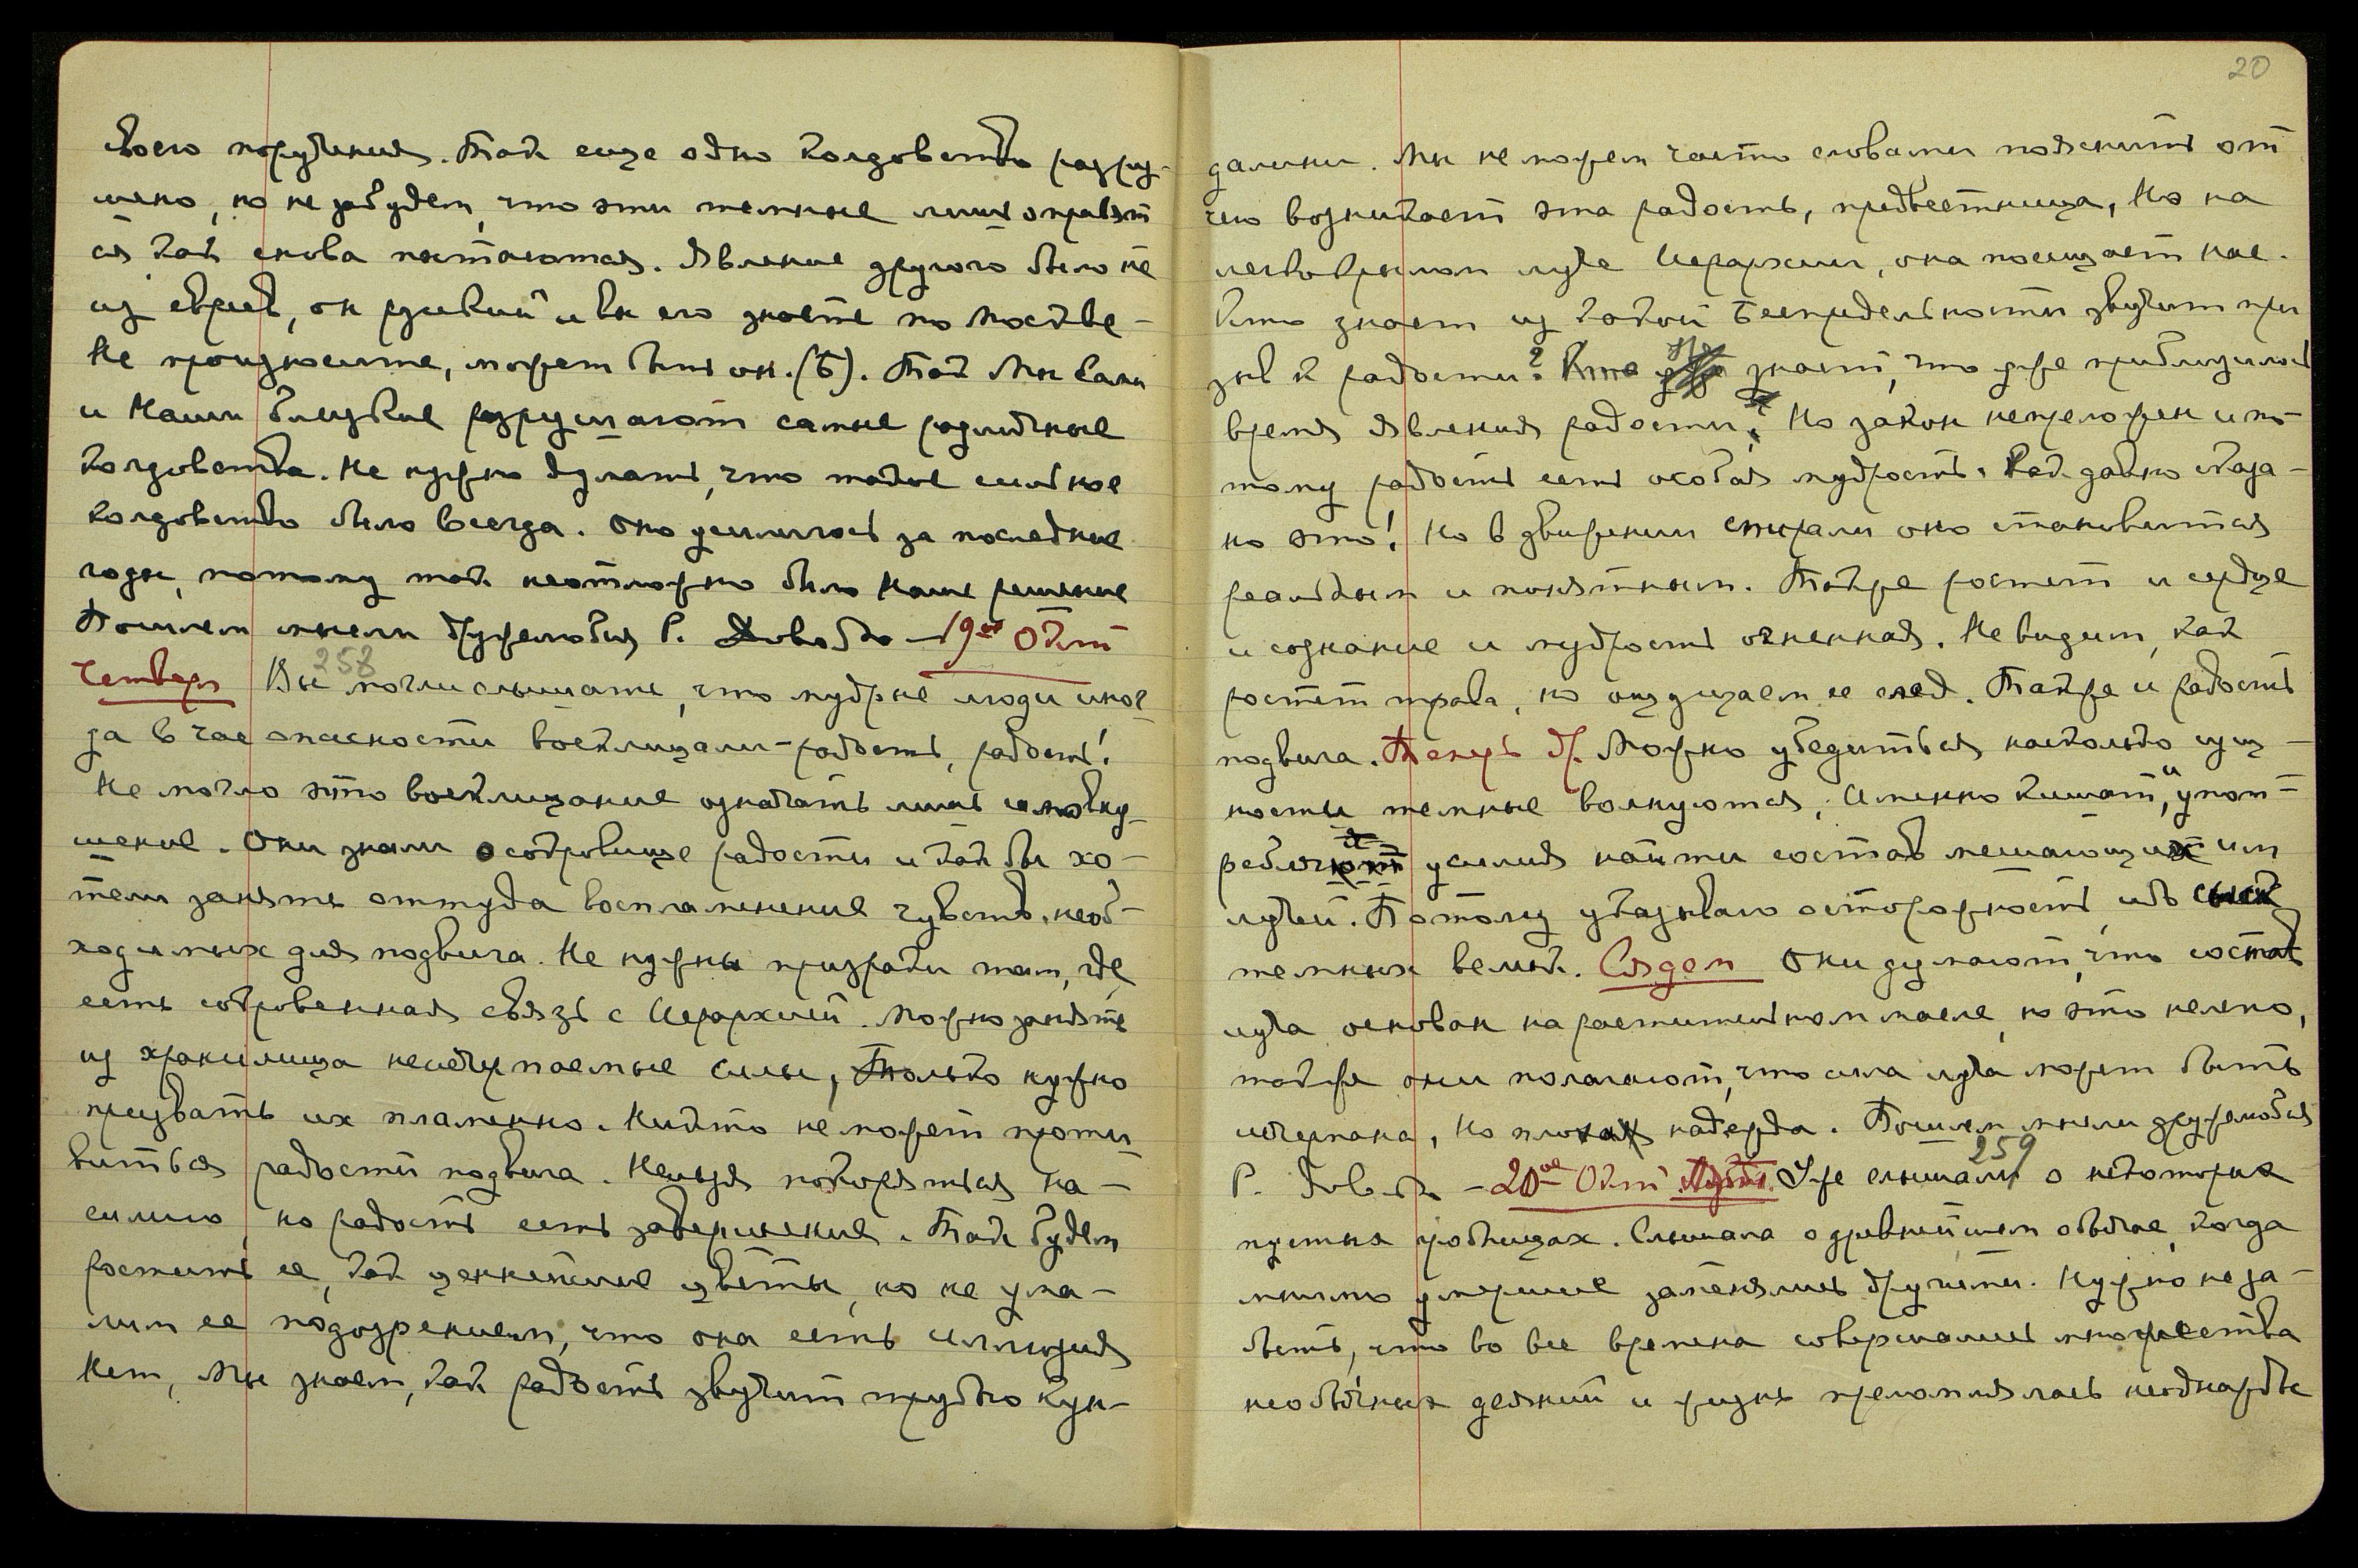 своего поручения. Так еще одно колдовство разру-
шено, но не забудем, что эти темные лишь оправят
ся как снова пытаются. Явление другого было не
из евреев, он рижский и вы его знаете по Москве -
Не произносите, может быть он. (Б). Так Мы сами
и Наши близкие разрушают самые различные
колдовства. Не нужно думать, что такое сильное
колдовство было всегда. Оно усилилось за последние
годы, потому так неотложно было Наше решение
Пошлем мысли дружелюбия Р. Довольно - 19ое Окт
Четверг 258 Вы могли слышать, что мудрые люди иног
да в час опасности восклицали - радость, радость!
Не могло это восклицание означать лишь самовну-
шение. Они знали о сокровище радости и как бы хо-
тели занять оттуда воспламенение чувств, необ-
ходимых для подвига. Не нужны призраки там, где
есть сокровенная связь с Иерархией. Можно занять
из хранилища неисчерпаемые силы, только нужно
призвать их пламенно. Никто не может проти
виться радости подвига. Нельзя покоряться на-
силию, но радость есть завершение. Так будем
растить ее, как ценнейшие цветы, но не ума-
лим ее подозрением, что она есть иллюзия
Нет, Мы знаем, как радость звучит трубою Кун-
20
далини. Мы не можем часто словами пояснить от
чего возникает эта радость, предвестница, Но на
легкокрылом луче Иерархии, она посещает нас.
Кто знает из какой Беспредельности звучит при
зыв к радости? Кто знает, что уже приблизилось
время явления радости? Но закон непреложен и по-
тому радость есть особая мудрость. Как давно сказа-
но это! Но в движении спирали оно становится
реальным и понятным. Также растет и сердце
и сознание и мудрость огненная. Не видим, как
растет трава, но ощущаем ее след. Также и радость
подвига. Теперь др. Можно убедиться насколько сущ-
ности темные волнуются, Именно кишат, и упот-
ребляют усилия найти состав мешающих им
лучей. Потому указываю осторожность, ибо сыск
темных велик. Сядем Они думают, что состав
луча основан на растительном масле, но это нелепо,
также они полагают, что сила луча может быть
исчерпана, но плохая надежда. Пошлем мысли дружелюбия
Р. Довольно - 20ое Окт 259 Уже слышали о некоторых
пустых гробницах. Слышала о древнейшем обычае, когда
мнимо умершие заменялись другими. Нужно не за-
быть, что во все времена совершались множества
необычных деяний и жизнь преломлялась неоднажды